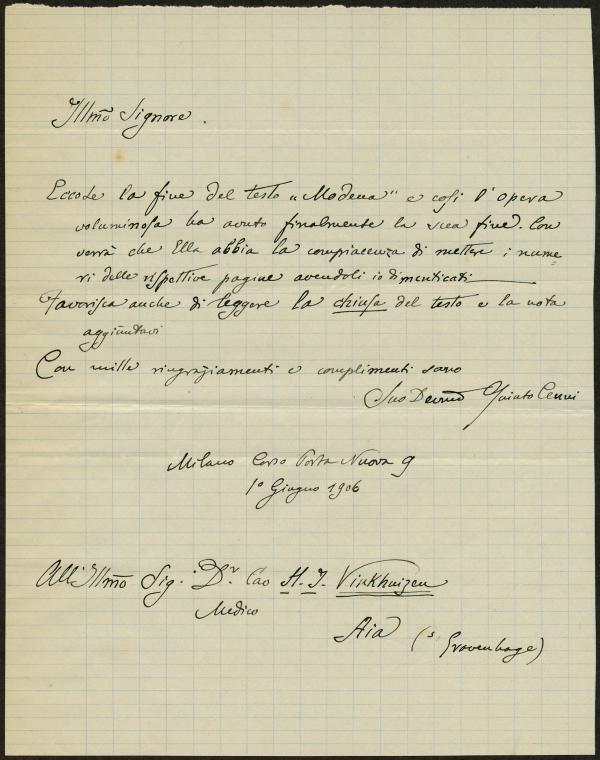 Illmo Signore.
Eccole la fine del testo "Modena" e così l'opera
voluminosa ha avuto finalmente la sua fine. Con
verrà che Ella abbia la compiacenza di mettere i nume
ri delle rispettive pagine avendoli io dimenticati
Favorisca anche di leggere la chiusa del testo e la nota
aggiuntavi
Con mille ringraziamenti e complimenti sono
Suo Devmo Quinto Cenni
Milano Corso Porta Nuova 9
1º Giugno 1906
All'Illmo Sig. Dr. Cav H. J. Vinkhuizen
Medico
Aia ('s Gravenhage)